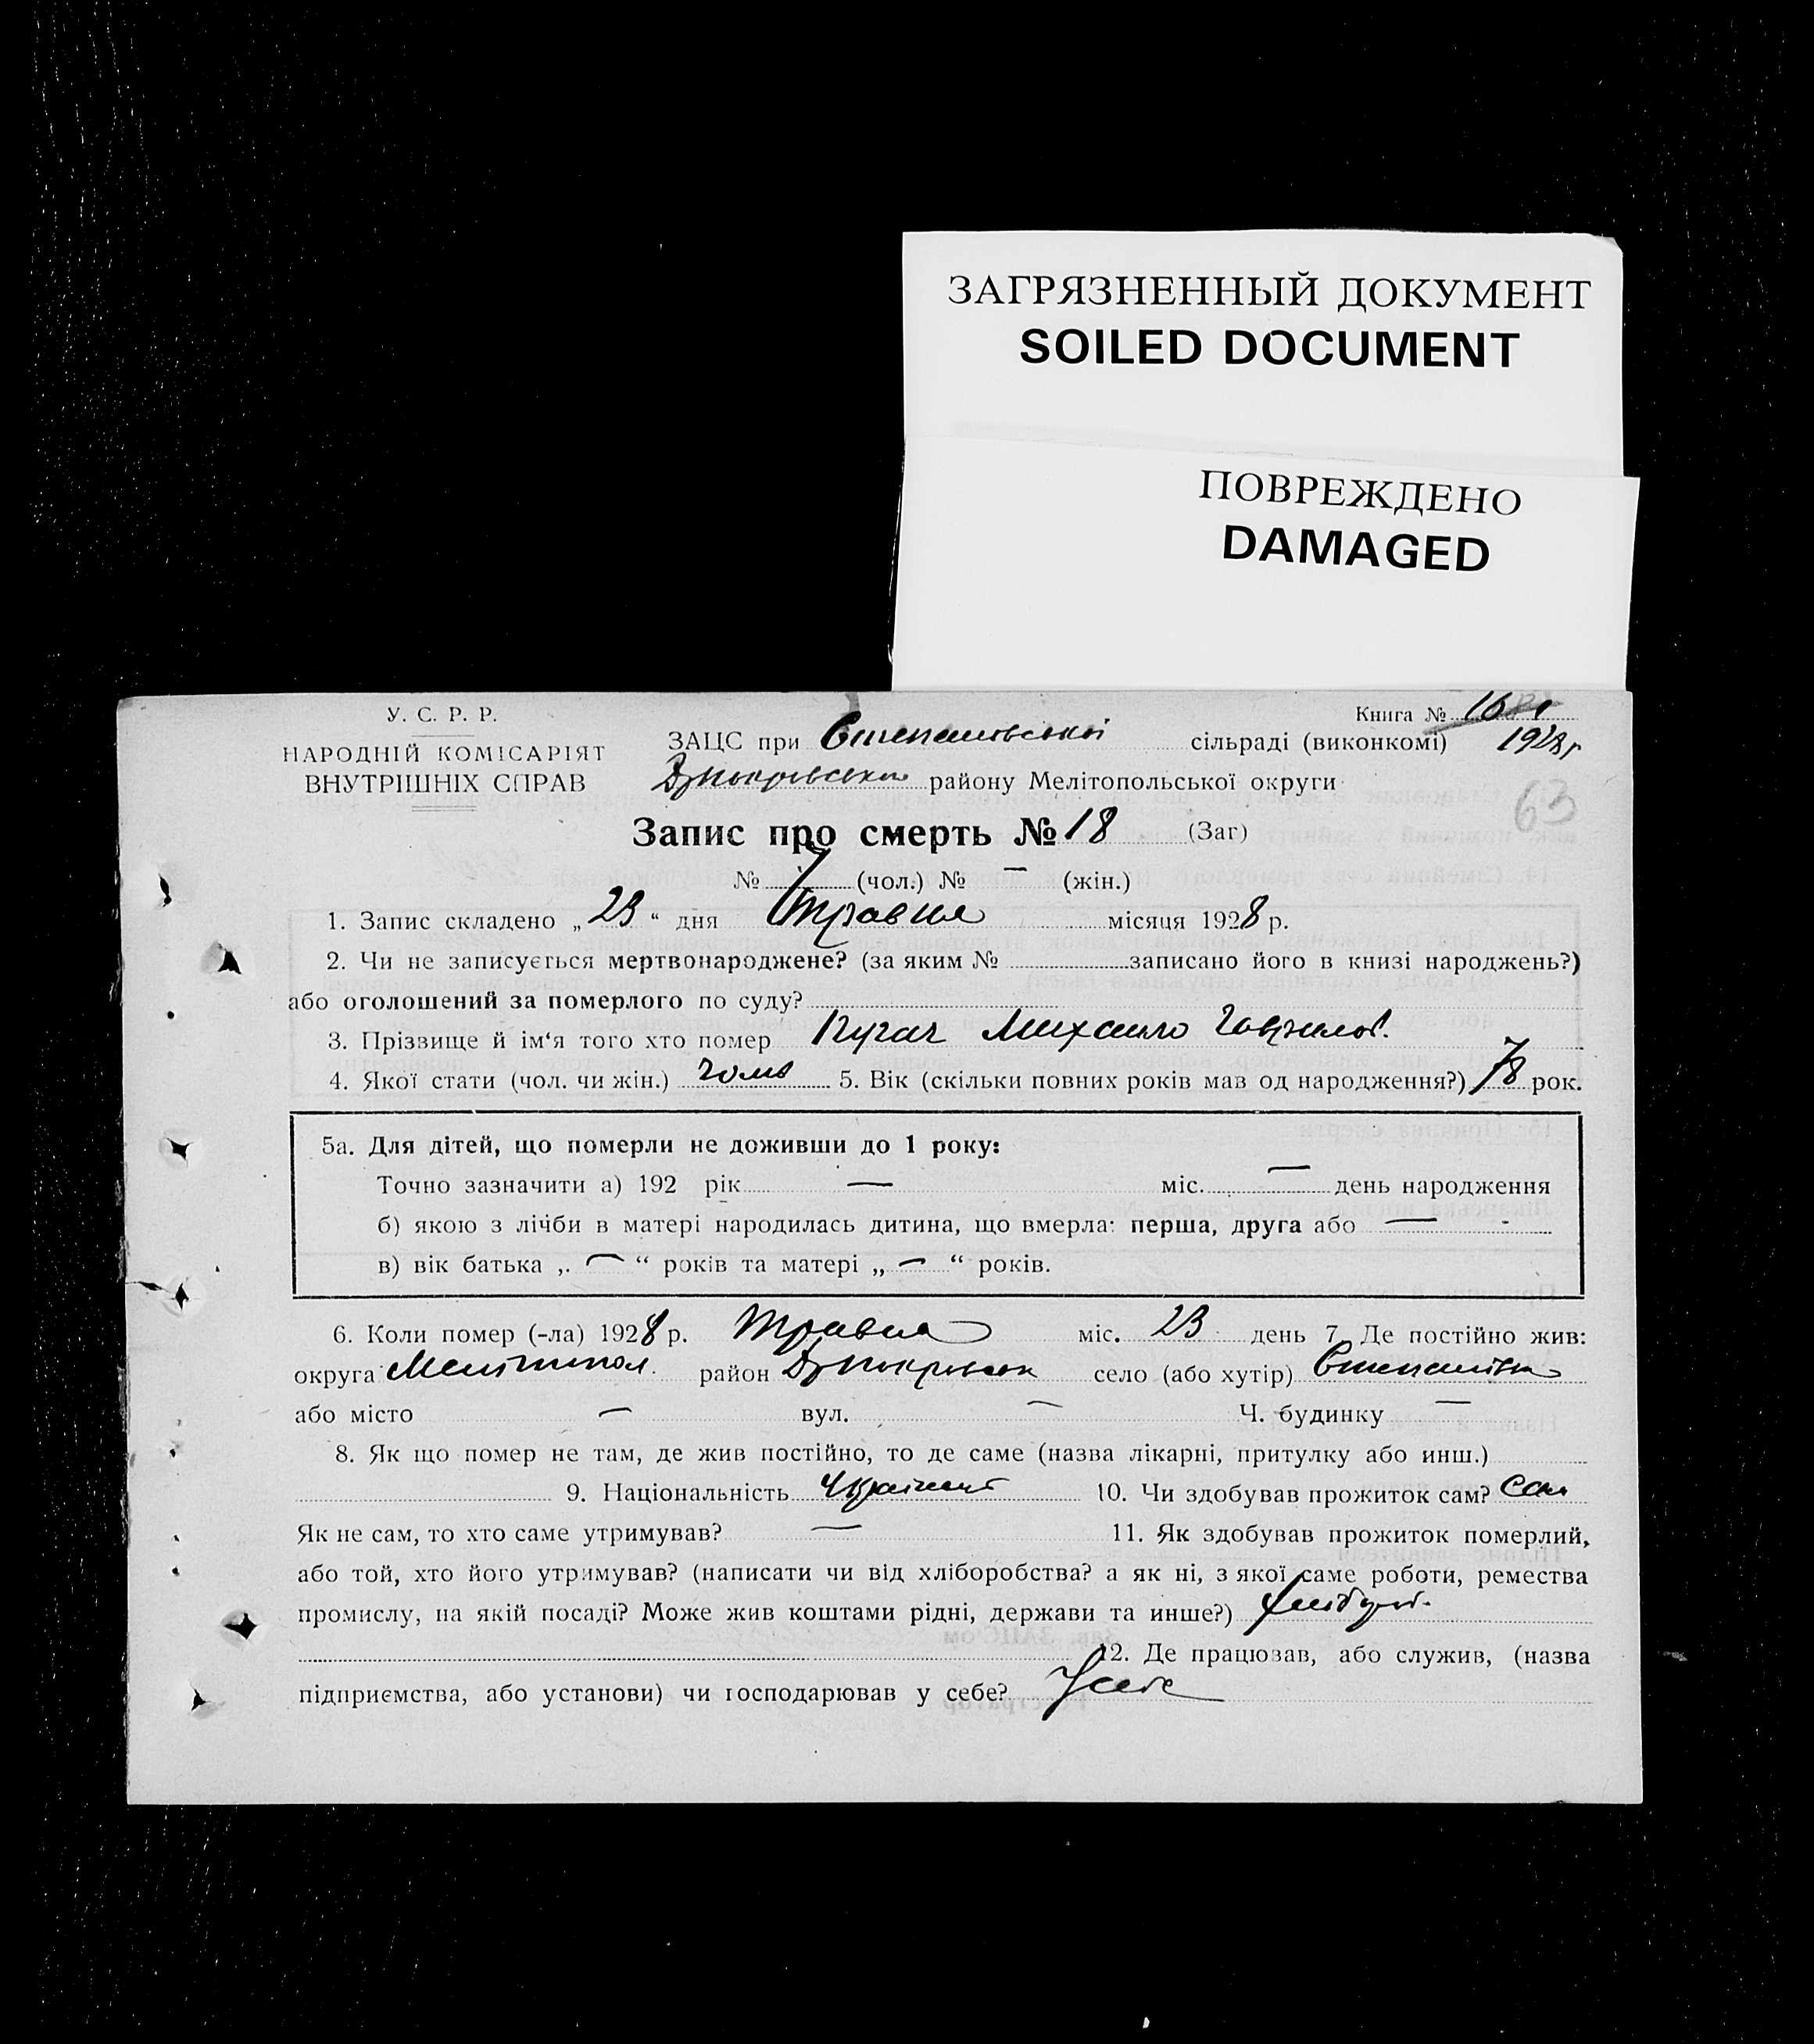 ЗАГРЯЗНЕННЫЙ ДОКУМЕНТ
SOILED DOCUMENT
ПОВРЕЖДЕНО
DAMAGED
У. С. Р. Р.
НАРОДНІЙ КОМІСАРІЯТ
ВНУТРІШНІХ СПРАВ
Книга №
ЗАЦС при Степанівській сільраді (виконкомі) 1928 г
району Мелітопольської округи
63
Запис про смерть № 18 (Заг)
№ 7 (чол.) № — (жін.)
1. Запис складено „23“ дня Травня місяця 1928 р.
2. Чи не записується мертвонароджене? (за яким № записано його в книзі народжень?)
або оголошений за померлого по суду?
3. Прізвище й ім‘я того хто помер Пугач Михайло Гаврилов.
4. Якої стати (чол. чи жін.) чолов 5. Вік (скільки повних років мав од народження?) 78 рок.
5а. Для дітей, що померли не доживши до 1 року:
Точно зазначити а) 192 рік — міс. — день народження
б) якою з лічби в матері народилась дитина, що вмерла: перша, друга або —
в) вік батька „ — “ років та матері „ — “ років.
6. Коли помер (-ла) 1928 р. Травня міс. 23 день 7. Де постійно жив:
округа Мелітопол. район село (або хутір) Степанівка
або місто — вул. — Ч. будинку —
8. Як що помер не там, де жив постійно, то де саме (назва лікарні, притулку або инш.)
9. Національність Українець 10. Чи здобував прожиток сам? Сам
Як не сам, то хто саме утримував? — 11. Як здобував прожиток померлий,
або той, хто його утримував? (написати чи від хліборобства? а як ні, з якої саме роботи, ремества
промислу, на якій посаді? Може жив коштами рідні, держави та инше?) хлібороб.
12. Де працював, або служив, (назва
підприємства, або установи) чи господарював у себе? У себе